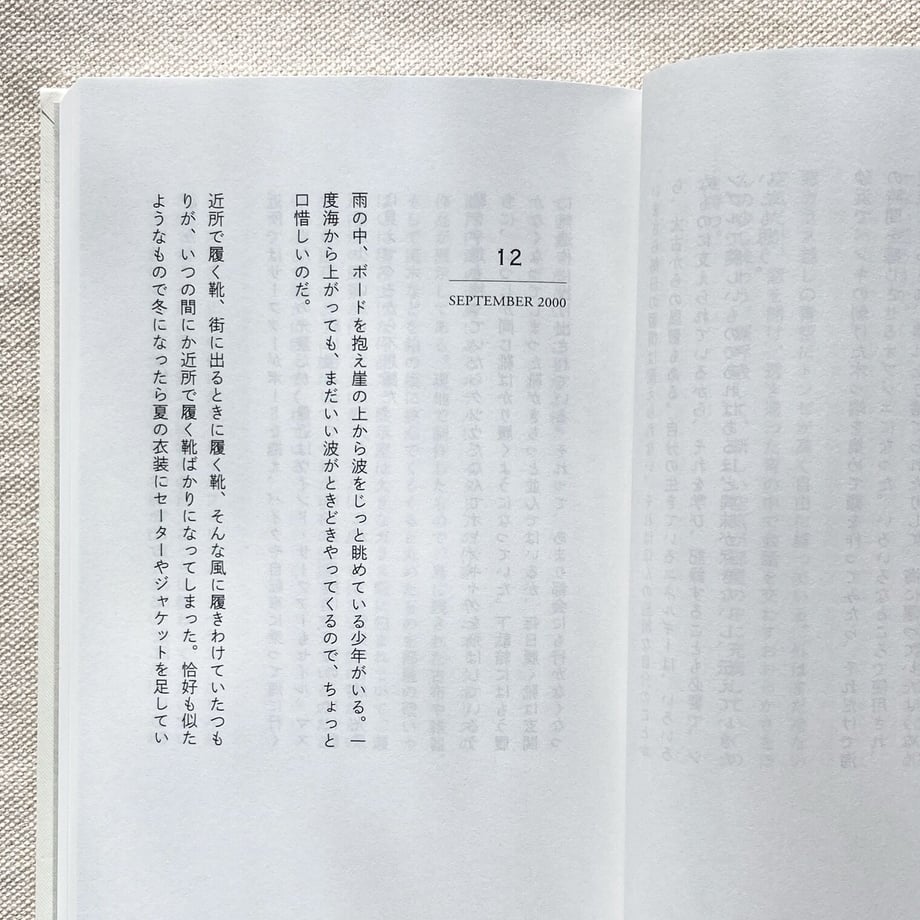 12
SEPTEMBER 2000
雨の中、ボードを抱え崖の上から波をじっと眺めている少年がいる。一
度海から上がっても、まだいい波がときどきやってくるので、ちょっと
口惜しいのだ。
近所で履く靴、街に出るときに履く靴、そんな風に履きわけていたつも
りが、いつの間にか近所で履く靴ばかりになってしまった。恰好も似た
ようなもので冬になったら夏の衣装にセーターやジャケットを足してい